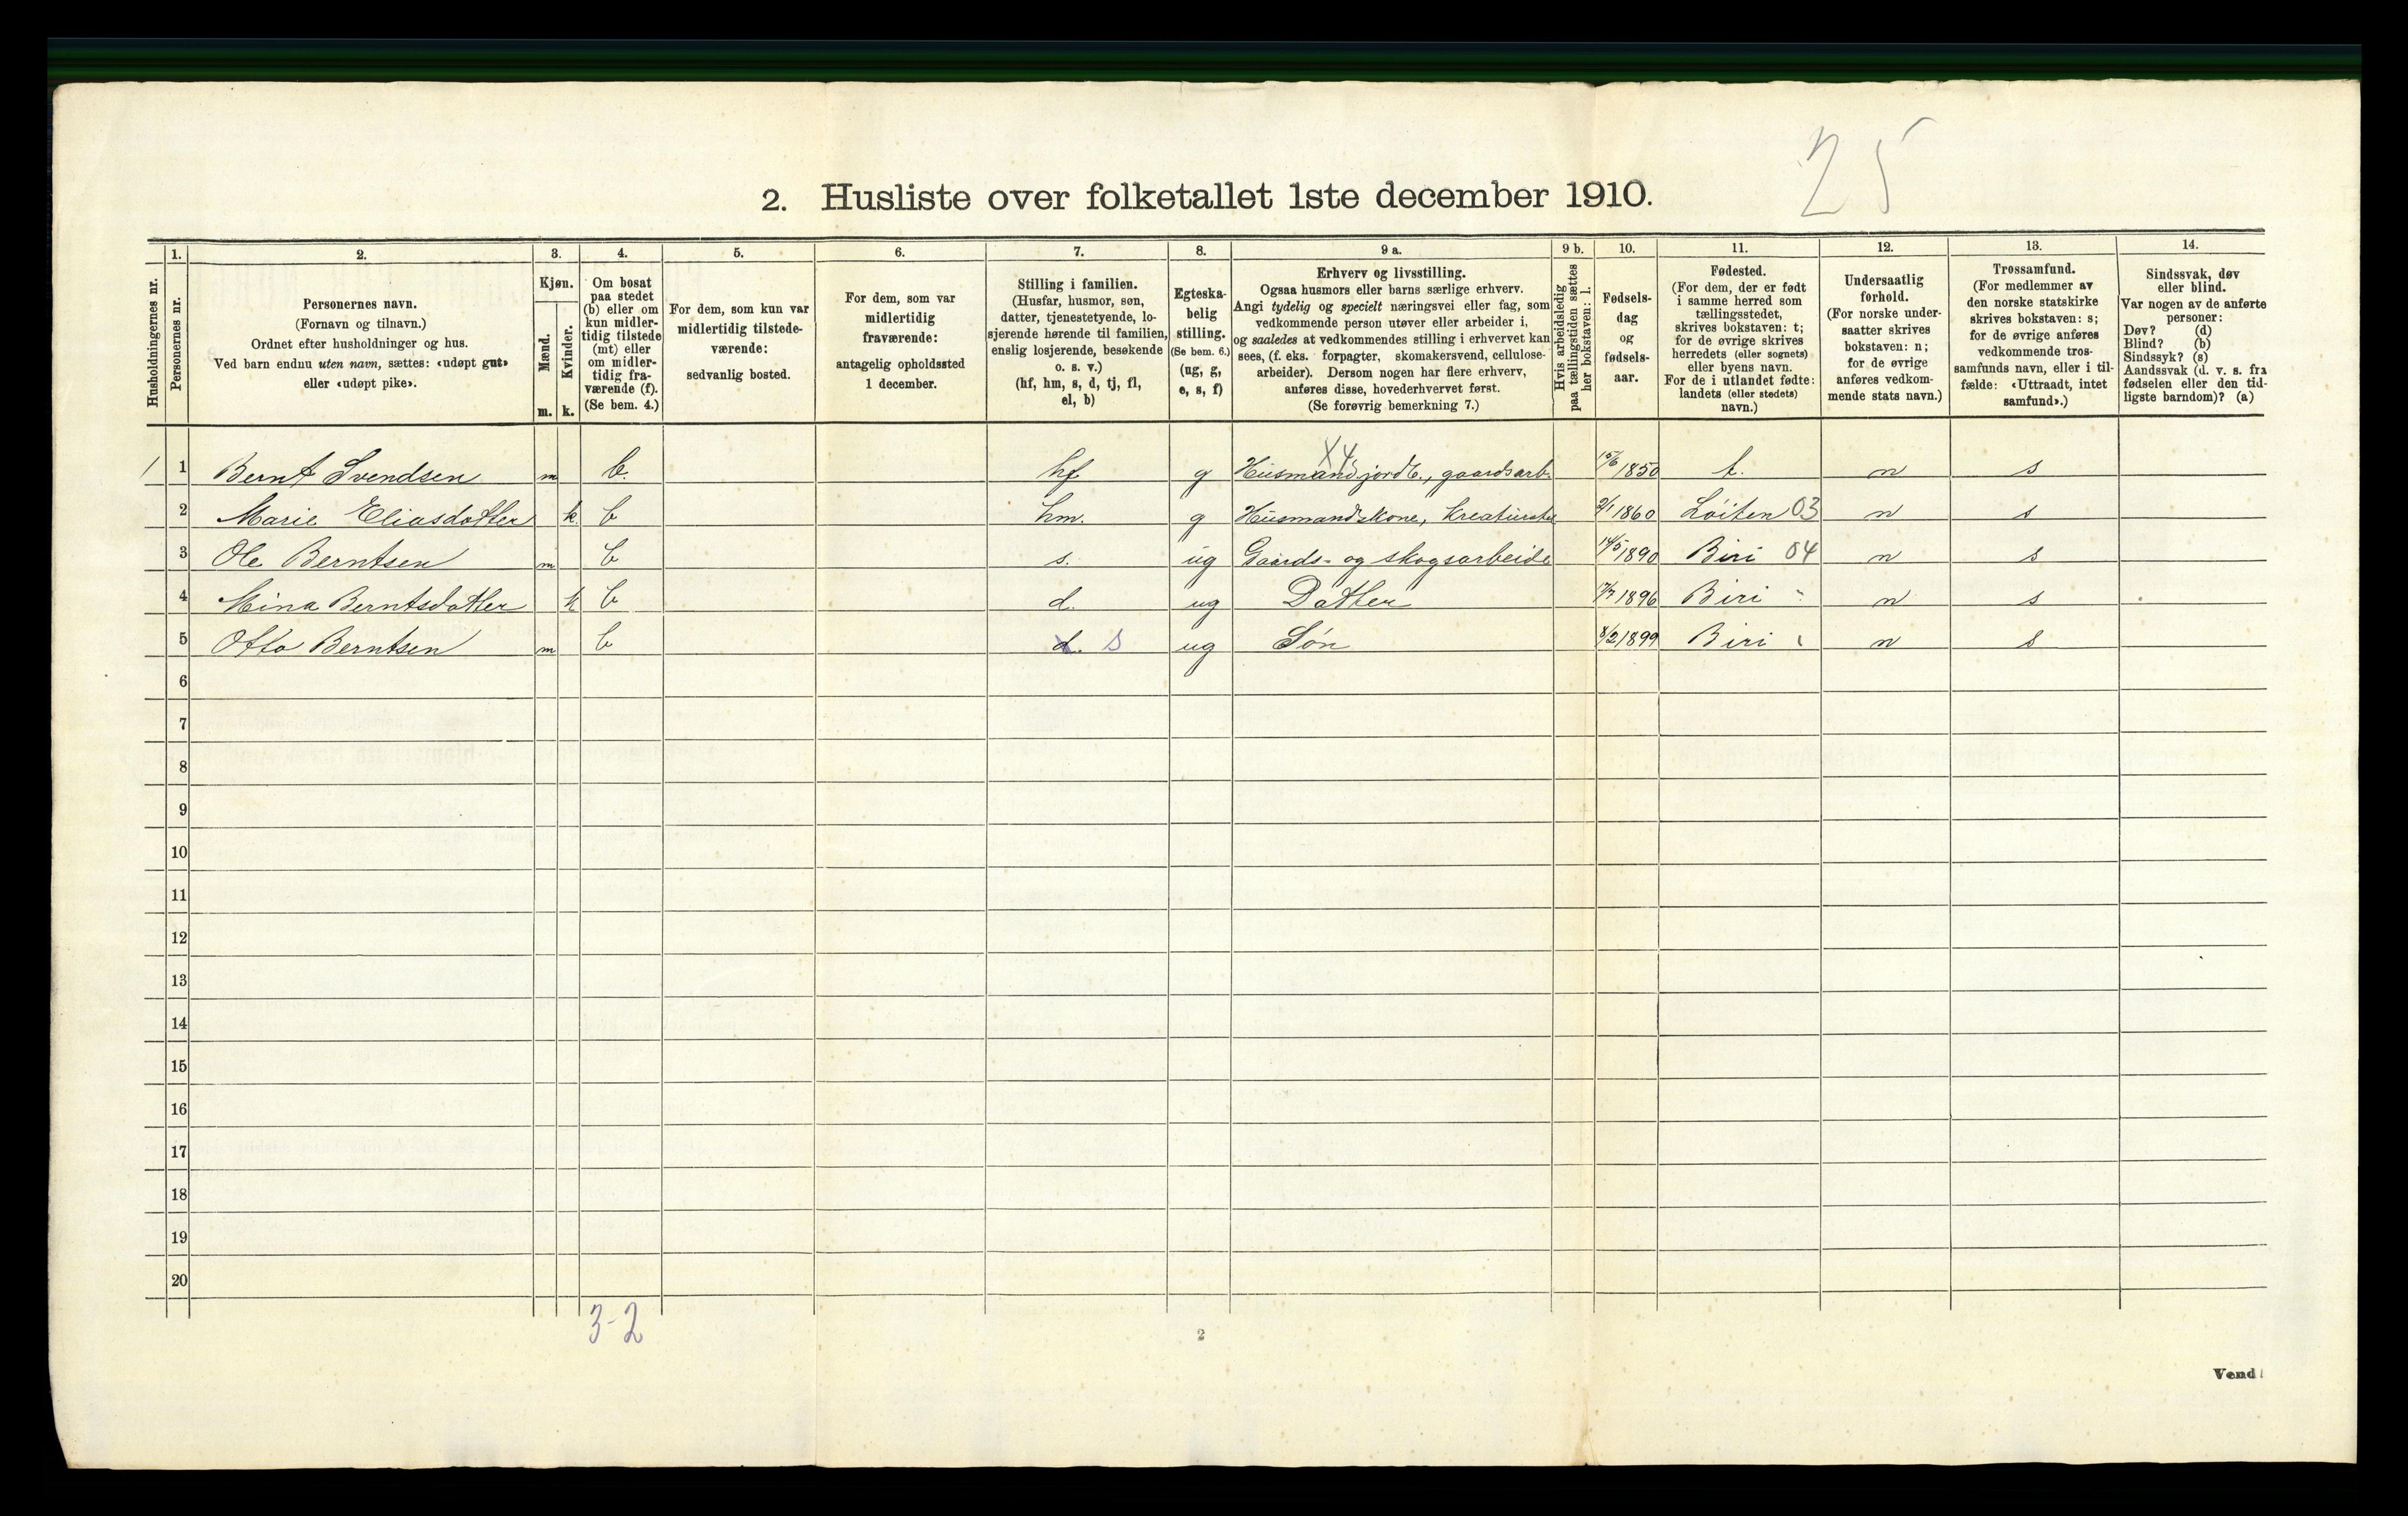 25
2. Husliste over folketallet 1ste december 1910.
Husholdningernes nr.
1.
Personernes nr.
2.
Personernes navn.
(Fornavn og tilnavn.)
Ordnet efter husholdninger og hus.
Ved barn endnu uten navn, sættes: «udøpt gut»
eller «udøpt pike».
3.
Kjøn.
Mænd.
Kvinder.
m. k.
4.
Om bosat
paa stedet
(b) eller om
kun midler-
tidig tilstede
(mt) eller
om midler-
tidig fra-
værende (f).
(Se bem. 4.)
5.
For dem, som kun var
midlertidig tilstede-
værende:
sedvanlig bosted.
6.
For dem, som var
midlertidig
fraværende:
antagelig opholdssted
1 december.
7.
Stilling i familien.
(Husfar, husmor, søn,
datter, tjenestetyende, lo-
sjerende hørende til familien,
enslig losjerende, besøkende
o. s. v.)
(hf, hm, s, d, tj, fl,
el, b)
8.
Egteska-
belig
stilling.
(Se bem. 6.)
(ug, g,
e, s, f)
9 a.
Erhverv og livsstilling.
Ogsaa husmors eller barns særlige erhverv.
Angi tydelig og specielt næringsvei eller fag, som
vedkommende person utøver eller arbeider i,
og saaledes at vedkommendes stilling i erhvervet kan
sees, (f. eks. forpagter, skomakersvend, cellulose-
arbeider). Dersom nogen har flere erhverv,
anføres disse, hovederhvervet først.
(Se forøvrig bemerkning 7.)
9 b.
Hvis arbeidsledig
paa tællingstiden sættes
her bokstaven: l.
10.
Fødsels-
dag
og
fødsels-
aar.
11.
Fødested.
(For dem, der er født
i samme herred som
tællingsstedet,
skrives bokstaven: t;
for de øvrige skrives
herredets (eller sognets)
eller byens navn.
For de i utlandet fødte:
landets (eller stedets)
navn.)
12.
Undersaatlig
forhold.
(For norske under-
saatter skrives
bokstaven: n;
for de øvrige
anføres vedkom-
mende stats navn.)
13.
Trossamfund.
(For medlemmer av
den norske statskirke
skrives bokstaven: s;
for de øvrige anføres
vedkommende tros-
samfunds navn, eller i til-
fælde: «Uttraadt, intet
samfund».)
14.
Sindssvak, døv
eller blind.
Var nogen av de anførte
personer:
Døv? (d)
Blind? (b)
Sindssyk? (s)
Aandssvak (d. v. s. fra
fødselen eller den tid-
ligste barndom)? (a)
X4
1 1 Bernt Svendsen m b. hf g Husmand jordb., gaardsarb. 15/6 1850 t. n s
2 Marie Eliasdatter k. b hm. g Husmandskone, Kreaturstel 2/1 1860 Løiten 03 n s
3 Ole Berntsen m b s. ug Gaards- og skogsarbeide 14/5 1890 Biri 04 n s
4 Mina Berntsdatter k b d. ug Datter 1896 Biri " n s
5 Otto Berntsen m b d. s ug Søn 8/2 1899 Biri n s
6
7
8
9
10
11
12
13
14
15
16
17
18
19
20
3-2
2
Vend!